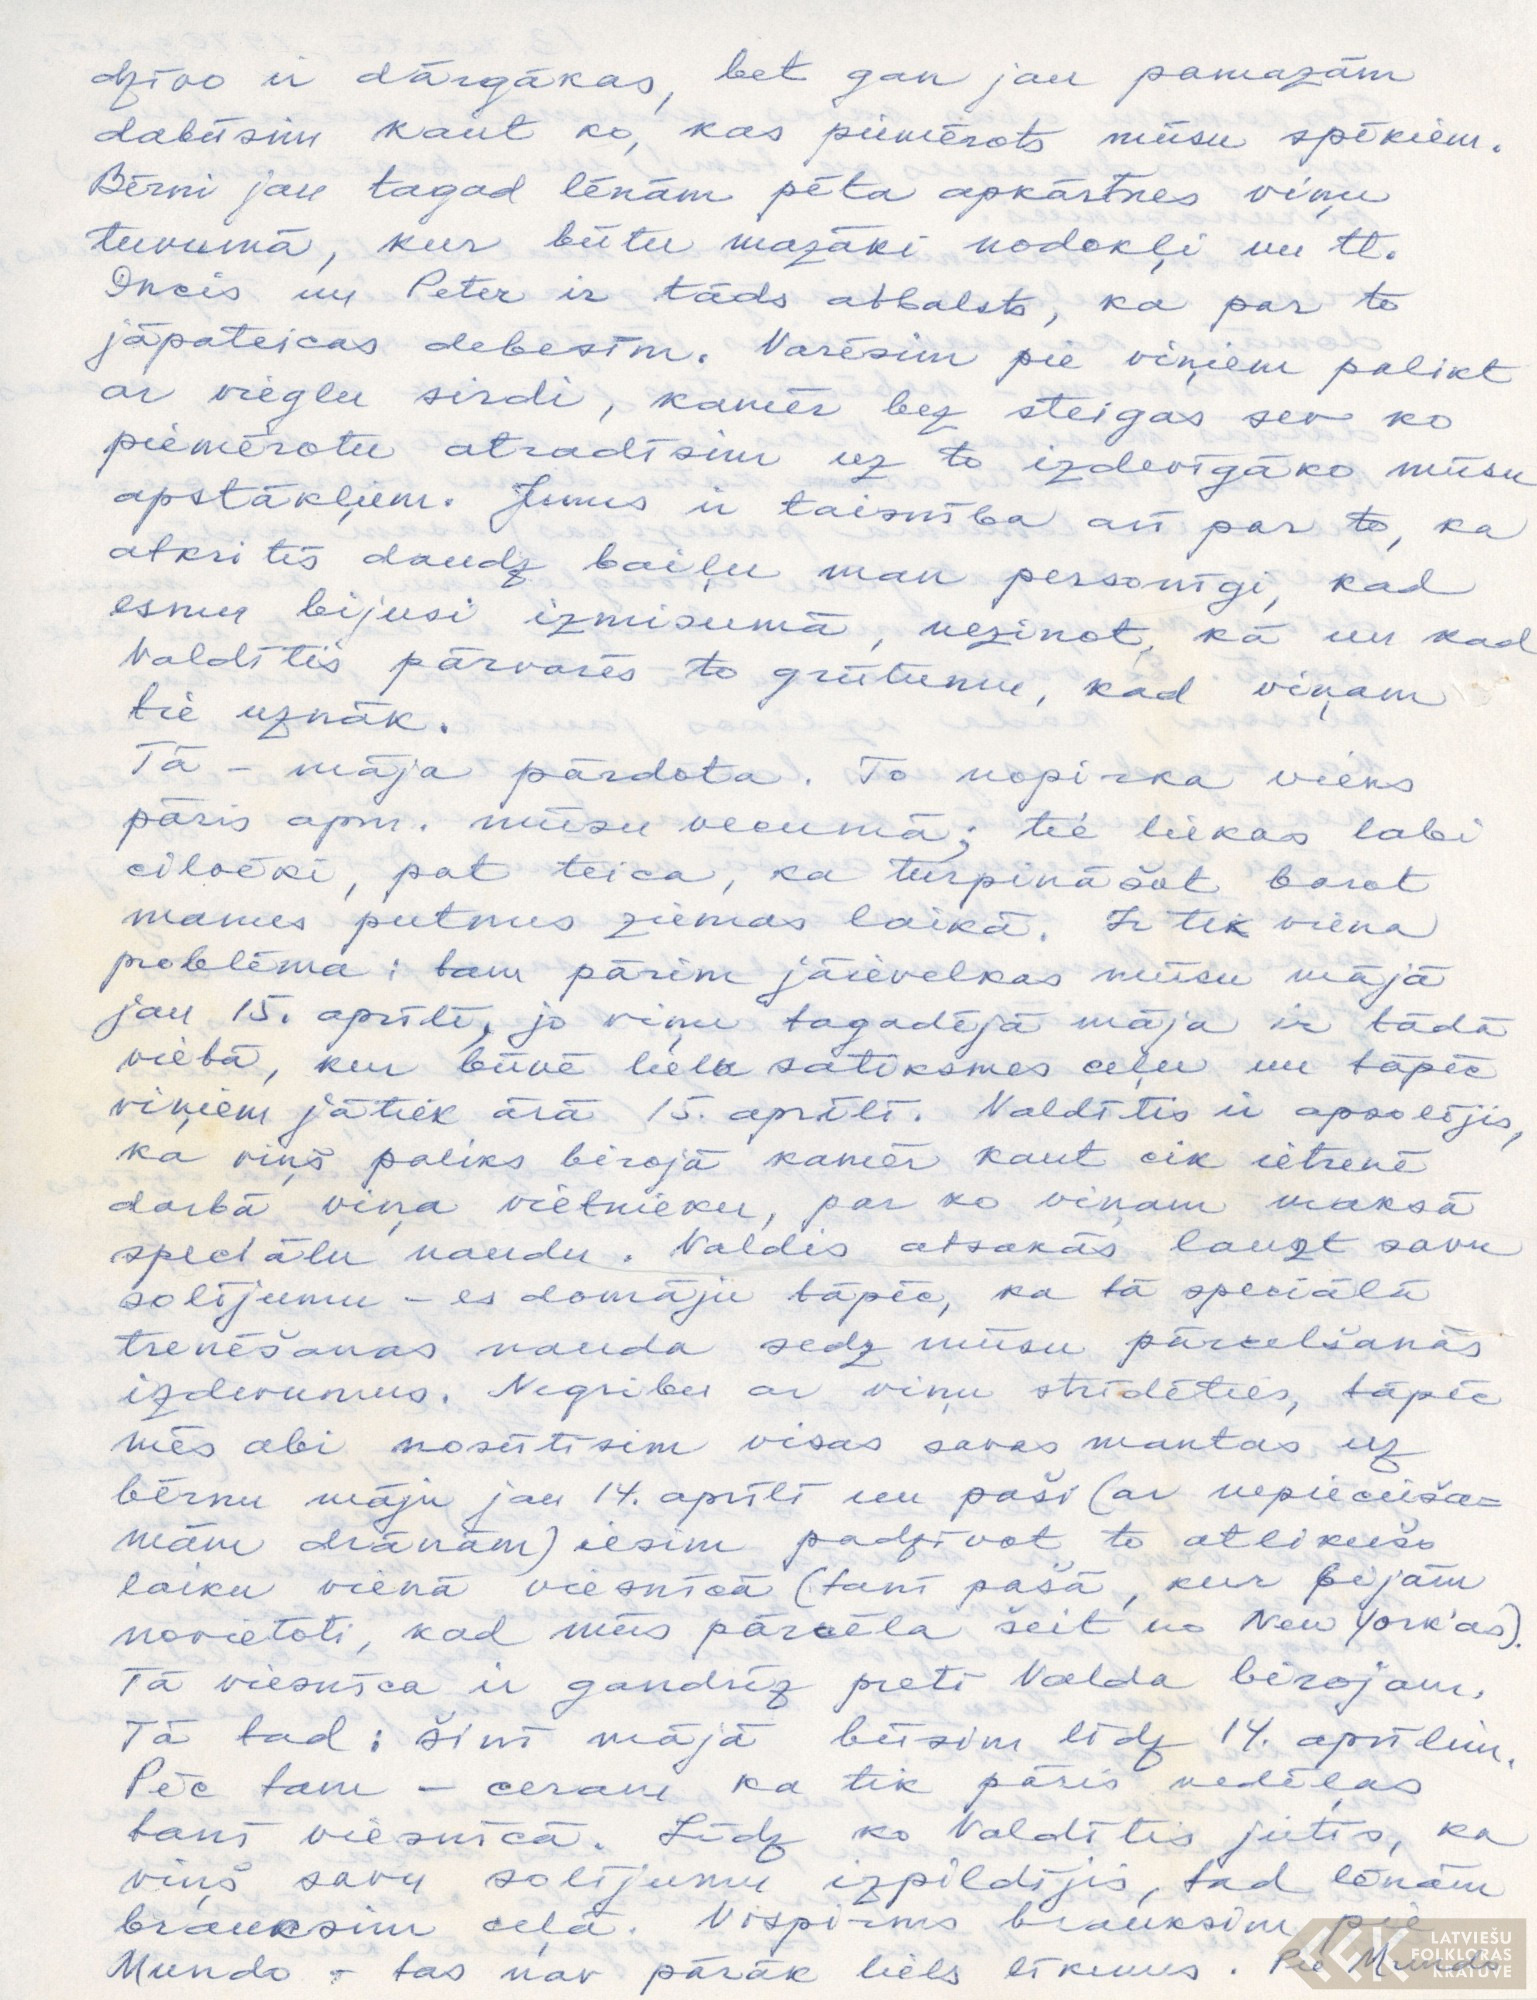 dzīvo ir dārgākas, bet gan jau pamazām
dabūsim kaut ko, kas piemērots mūsu spēkiem.
Bērni jau tagad lēnām pēta apkārtnes viņu
tuvumā, kur būtu mazāki nodokļi un tt.
Incis un Peter ir tāds atbalsts, ka par to
jāpateicas debesīm. Varēsim pie viņiem palikt
ar vieglu sirdi, kamēr bez steigas sev ko
piemērotu atradīsim uz to izdevīgāko mūsu
apstākļiem. Jums ir taisnība arī par to, ka
atkritīs daudz baiļu man personīgi, kad
esmu bijusi izmisumā, nezinot, kā un kad
Valdītis pārvarēs to grūtumu, kad viņam
tie uznāk.
Tā - māja pārdota. To nopirka viens
pāris apm. mūsu vecumā; tie liekas labi
cilvēki, pat teica, ka turpināšot barot
manus putnus ziemas laikā. Ir tik viena
problēma: tam pārim jāievelkas mūsu mājā
jau 15. aprīlī, jo viņu tagadējā māja ir tādā
vietā, kur būvē lielu satiksmes ceļu un tāpēc
viņiem jātiek ārā 15. aprīlī. Valdītis ir apsolījis,
ka viņš paliks birojā kamēr kaut cik ietrenē
darbā viņa vietnieku, par ko viņam maksā
speciālu naudu. Valdis atsakās lauzt savu
solījumu - es domāju tāpēc, ka tā speciālā
trenēšanas nauda sedz mūsu pārcelšanās
izdevumus. Negribu ar viņu strīdēties, tāpēc
mēs abi nosūtīsim visas savas mantas uz
bērnu māju jau 14. aprīlī un paši (ar nepiecieša=
mām drānām) iesim padzīvot to atlikušo
laiku vienā viesnīcā (tanī pašā, kur bijām
novietoti, kad mūs pārcēla šeit no New York'as).
Tā viesnīca ir gandrīz pretī Valda birojam.
Tā tad: šinī mājā būsim līdz 14. aprīlim.
Pēc tam - ceram ka tik pāris nedēļas
tanī viesnīcā. Līdz ko Valdītis jutīs, ka
viņš savu solījumu izpildījis, tad lēnām
brauksim ceļā. Vispirms brauksim pie
Mundo - tas nav pārāk liels līkums. Pie Mundo
LATVIEŠU
FOLKLORAS
KRĀTUVE